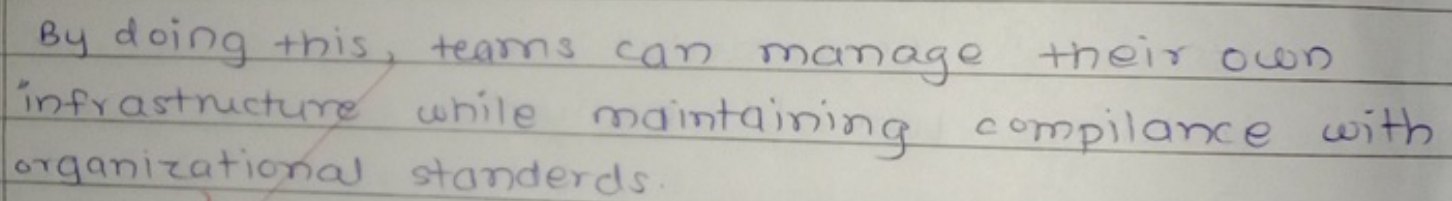 By doing this, teams can manage their own
infrastructure while maintaining compilance with
organizational standerds.